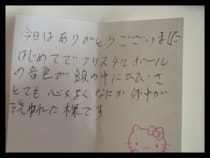 今日はありがとうございました
はじめてでクリスタルボール
の音色が頭の中にひびき
とても心ちよくなにか体中が
洗われた様です